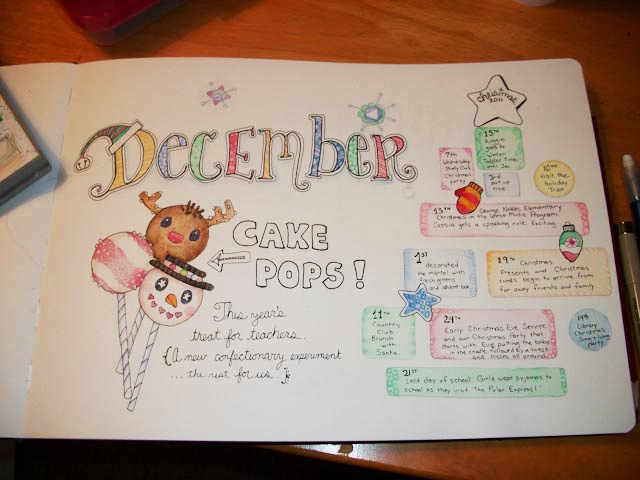 December
CAKE
POPS!
This year's
treat for teachers.
{A new confectionary experiment
...the rest for us.}
Christmas
2011
15th
Auggie
goes to
Winter
Toddler Time
7th
Wednesday
Study Club
Christmas
party
3rd
put up
tree
10th
visit the
Holiday
Train
13th George Nettels Elementary
Christmas in the West Music Program.
Cassia gets a speaking role. Exciting.
1st
decorated
the mantel with
fresh greens
and advent box
19th Christmas
Presents and Christmas
cards begin to arrive from
far away friends and family.
11th
Country
Club
Brunch
with
Santa
24th
Early Christmas Eve Service
and our Christmas Party that
starts with Evie putting the baby
in the cradle, followed by a toast
and kisses all around.
14th
Library
Christmas
party
21st
Last day of school. Girls wear pyjamas to
school as they visit The Polar Express!